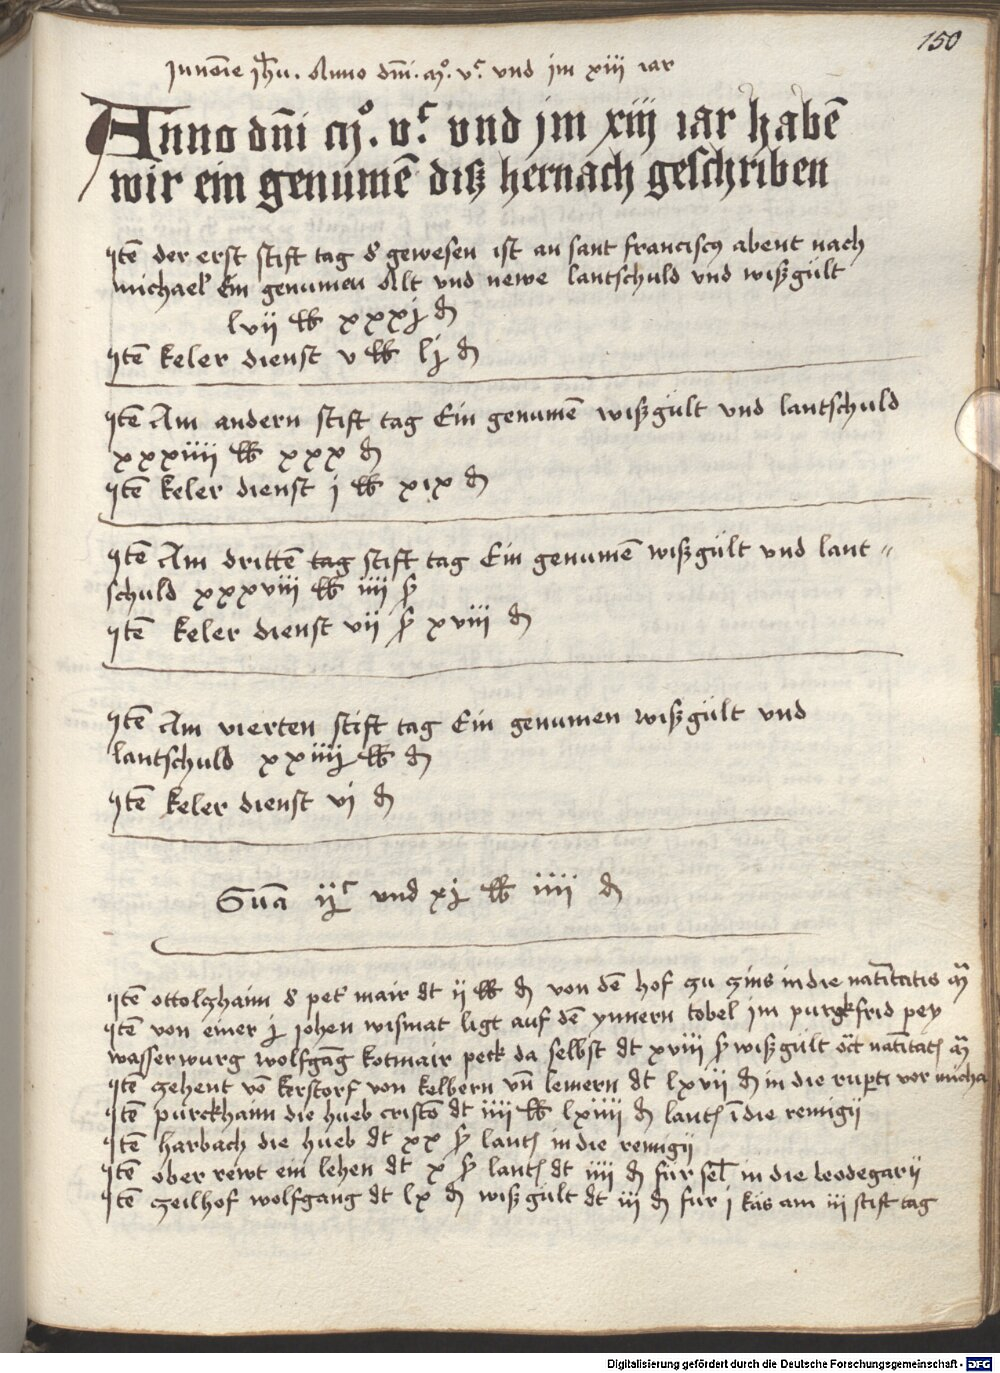 150
In no͞ie Jhu. Anno dn͞i. mͦ. vᶜ. vnd jm xiii iar
Anno dn͞i mͦ. vᶜ vnd jm xiij iar habē
wir ein genumē diß hernach geschriben
Itē der erst stift tag d gewesen ist an sant franciscq abent nach
michael Ein genumen Alt vnd newe lantschuld vnd wißgült
lvii ℔ xxxj ₰
Itē keler dienst v ℔ lj ₰
Itē Am andern stift tag Ein genumē wißgült vnd lantschuld
xxxiiii ℔ xxx ₰
Itē keler dienst j ℔ xix ₰
Itē Am drittē tag stift tag Ein genumē wißgült vnd lant =
schuld xxxviii ℔ iiii ß
Itē keler dienst vii ß xviii ₰
Itē Am vierten stift tag Ein genumen wißgült vnd
lantschuld xxiiij ℔ ₰
Itē keler dienst vi ₰
Sūa ijᶜ vnd xj ℔ iiii ₰
Itē ottolczhaim d pet mair dt ij ℔ ₰ von dē hof zu zins in die natītatis
Itē von einer j johen wismat ligt auf dē ynnern tobel im purgkfrid pey
wasserwurg wolfgāg kotmair peck da selbst dt xviii ß wißgült
Itē zehent vō kerstorf von kelbern vn̄ lemern dt lxvii ₰ in die rupti vor micha
Itē purckhann die hueb cristō dt iiii ℔ lxiiii ₰ lant ī die remigij
Itē harbach die hueb dt xx ß lant in die remigij
Itē ober rewt ein lehen dt x ß lant dt iiii ₰ für in die leodegarij
Itē zeilhof wolfgang dt lx ₰ wißgült dt iii ₰ für j käs am iij stift tag
Digitalisierung gefördert durch die Deutsche Forschungsgemeinschaft - DFG